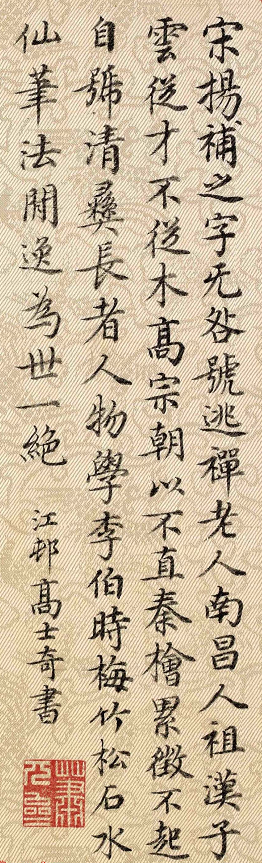 宋揚補之字无咎號逃禪老人南昌人祖漢子
雲從才不從木髙宗朝以不直秦檜累徵不起
自號清彝長者人物學李伯時梅竹松石水
仙筆法閒逸為世一絕
江邨髙士奇書